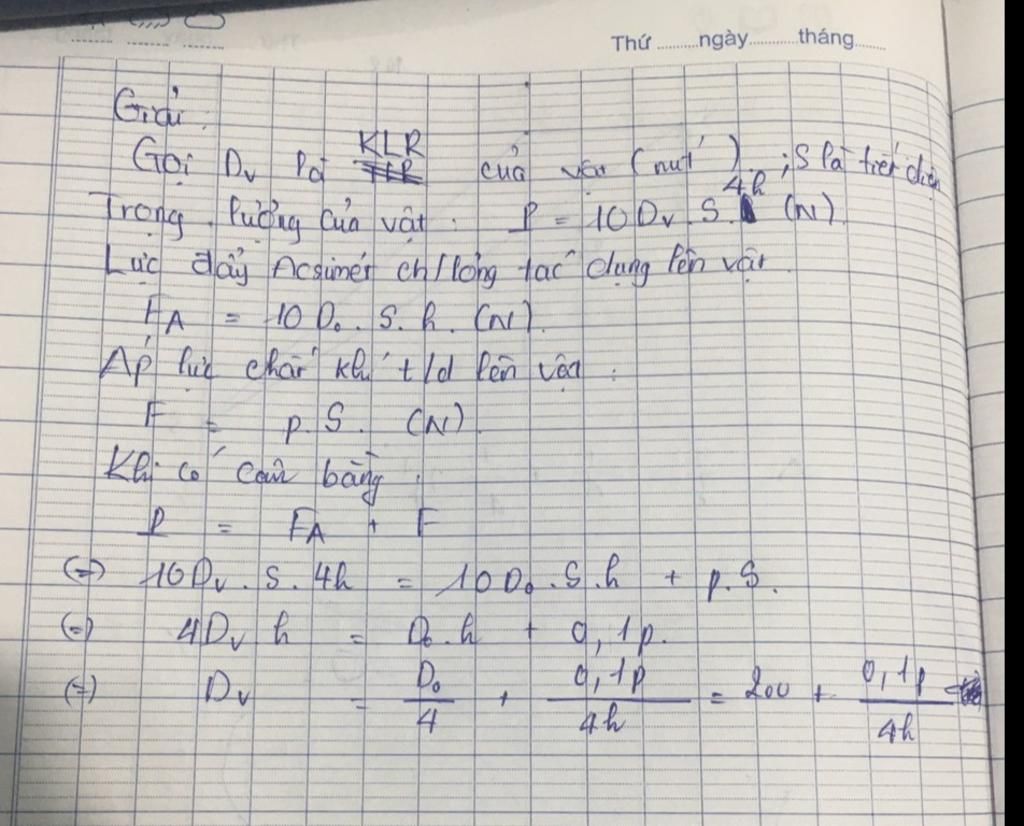 Thứ ..........ngày..........tháng........
Giải :
Gọi Dv là KLR của vật (nút) ; S là tiết diện
Trọng lượng của vật : P = 10Dv . S. 4h (N).
Lực đẩy Acsimet ch/lỏng tác dụng lên vật
FA = 10 D₀ . S. h. (N).
Áp lực chất khí t/d lên vật :
F = p. S. (N)
Khi có cân bằng :
P = FA + F
(=) 10Dv . S . 4h = 10 D₀ . S . h + p. S.
(=) 4Dv h = D₀.h + 0,1p.
(=) Dv = D₀/4 + 0,1p/4h = 200 + 0,1p/4h